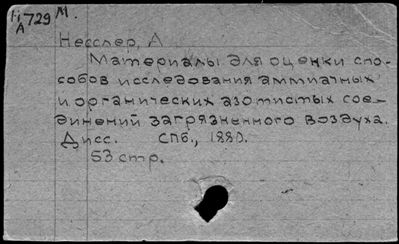 729 М.
А
Несслер, А
Материалы для оценки спо-
собов исследования аммиачных
и органических азотистых сое-
динений загрязненного воздуха.
Дисс. СПб., 1880.
53 стр.